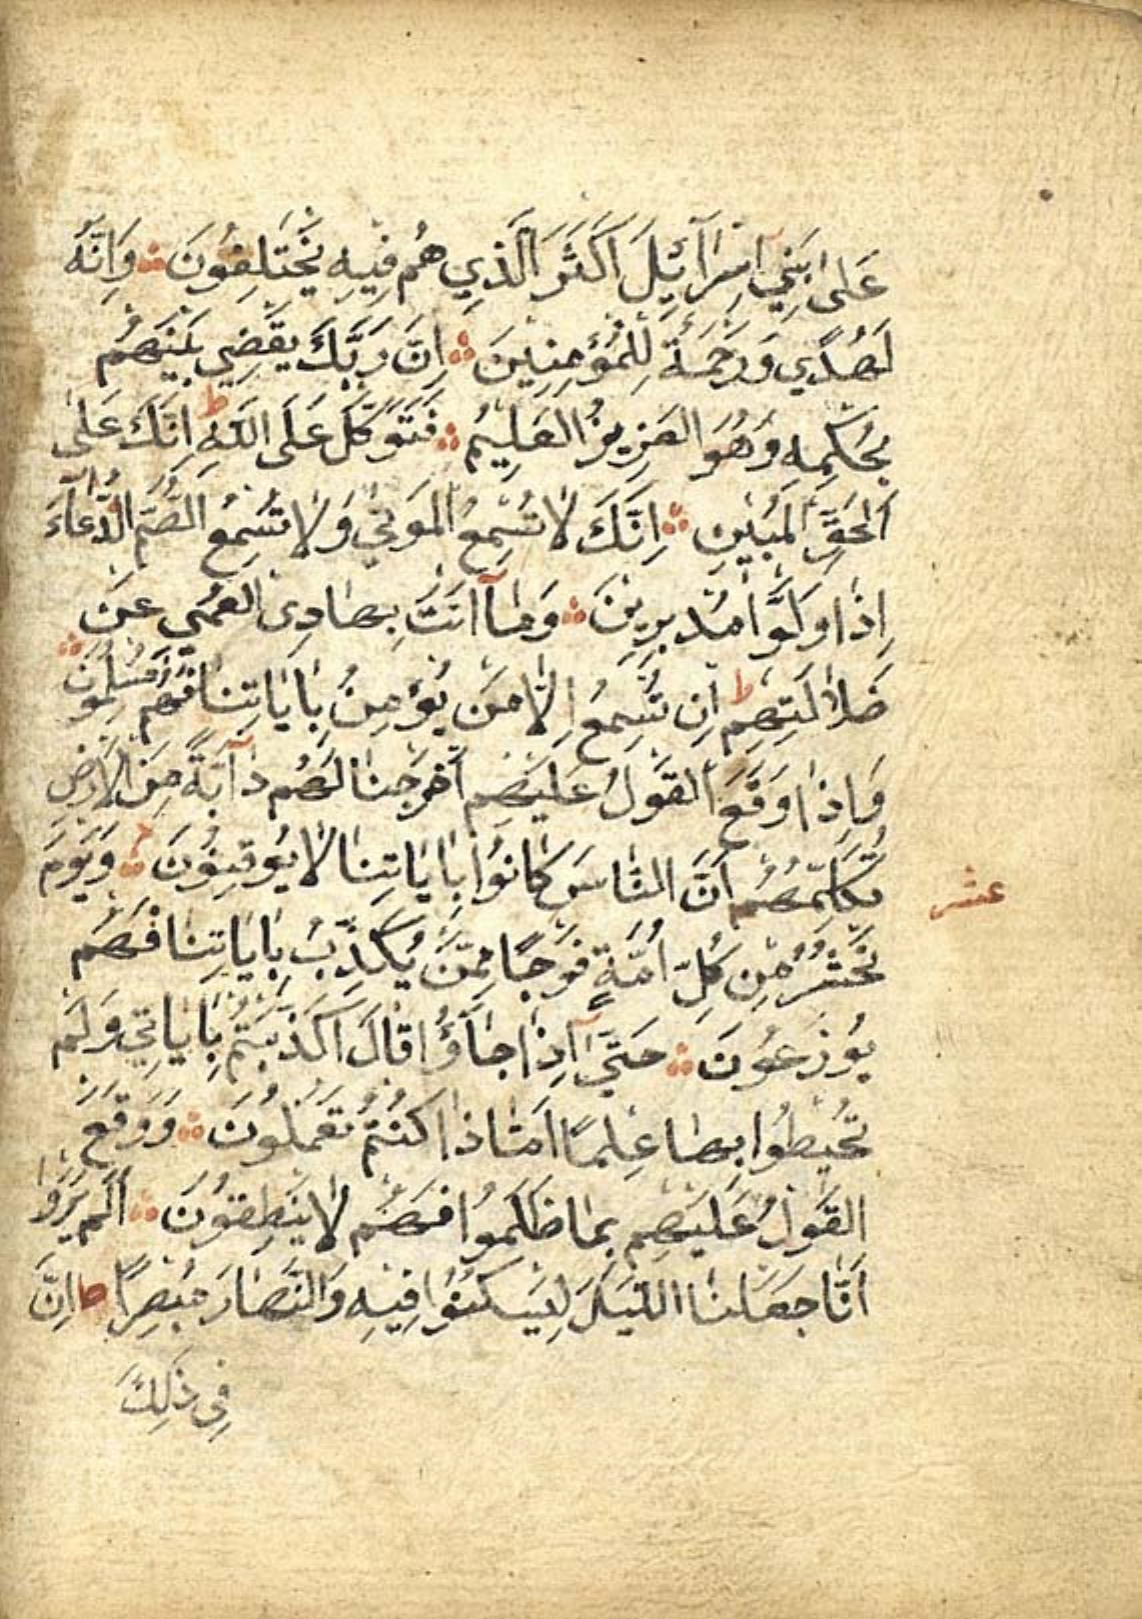 عَلٰى بَنِي اِسْرَآئِلَ اَكْثَرَ الَّذِي هُمْ فِيهِ يَخْتَلِفُونَ ۞ وَاِنَّهُ
لَهُدًي وَرَحْمَةٌ لِلْمُؤْمِنِينَ ۞ اِنَّ رَبَّكَ يَقْضِي بَيْنَهُمْ
بِحُكْمِهِ وَهُوَ الْعَزِيزُ الْعَلِيمُ ۞ فَتَوَكَّلْ عَلَى اللّٰهِ ط اِنَّكَ عَلَى
الْحَقِّ الْمُبِينِ ۞ اِنَّكَ لَا تُسْمِعُ الْمَوْتٰي وَلَا تُسْمِعُ الصُّمَّ الدُّعَآءَ
اِذَا وَلَّوْا مُدْبِرِينَ ۞ وَمَآ اَنْتَ بِهَادِى الْعُمْيِ عَنْ
ضَلَالَتِهِمْ ط اِنْ تُسْمِعُ اِلَّا مَنْ يُؤْمِنُ بِاٰيَاتِنَا فَهُمْ مُسْلِمُونَ ۞
وَاِذَا وَقَعَ الْقَوْلُ عَلَيْهِمْ اَخْرَجْنَا لَهُمْ دَآبَّةً مِنَ الْاَرْضِ
تُكَلِّمُهُمْ اَنَّ النَّاسَ كَانُوا بِاٰيَاتِنَا لَا يُوقِنُونَ ۞ وَيَوْمَ
عشر
نَحْشُرُ مِنْ كُلِّ اُمَّةٍ فَوْجًا مِمَّنْ يُكَذِّبُ بِاٰيَاتِنَا فَهُمْ
يُوزَعُونَ ۞ حَتّٰيٓ اِذَا جَآؤُا قَالَ اَكَذَّبْتُمْ بِاٰيَاتِي وَلَمْ
تُحِيطُوا بِهَا عِلْمًا اَمَّا ذَا كُنْتُمْ تَعْمَلُونَ ۞ وَوَقَعَ
الْقَوْلُ عَلَيْهِمْ بِمَا ظَلَمُوا فَهُمْ لَا يَنْطِقُونَ ۞ اَلَمْ يَرَوْا
اَنَّا جَعَلْنَا اللَّيْلَ لِيَسْكُنُوا فِيهِ وَالنَّهَارَ مُبْصِرًا ط اِنَّ
فِى ذٰلِكَ